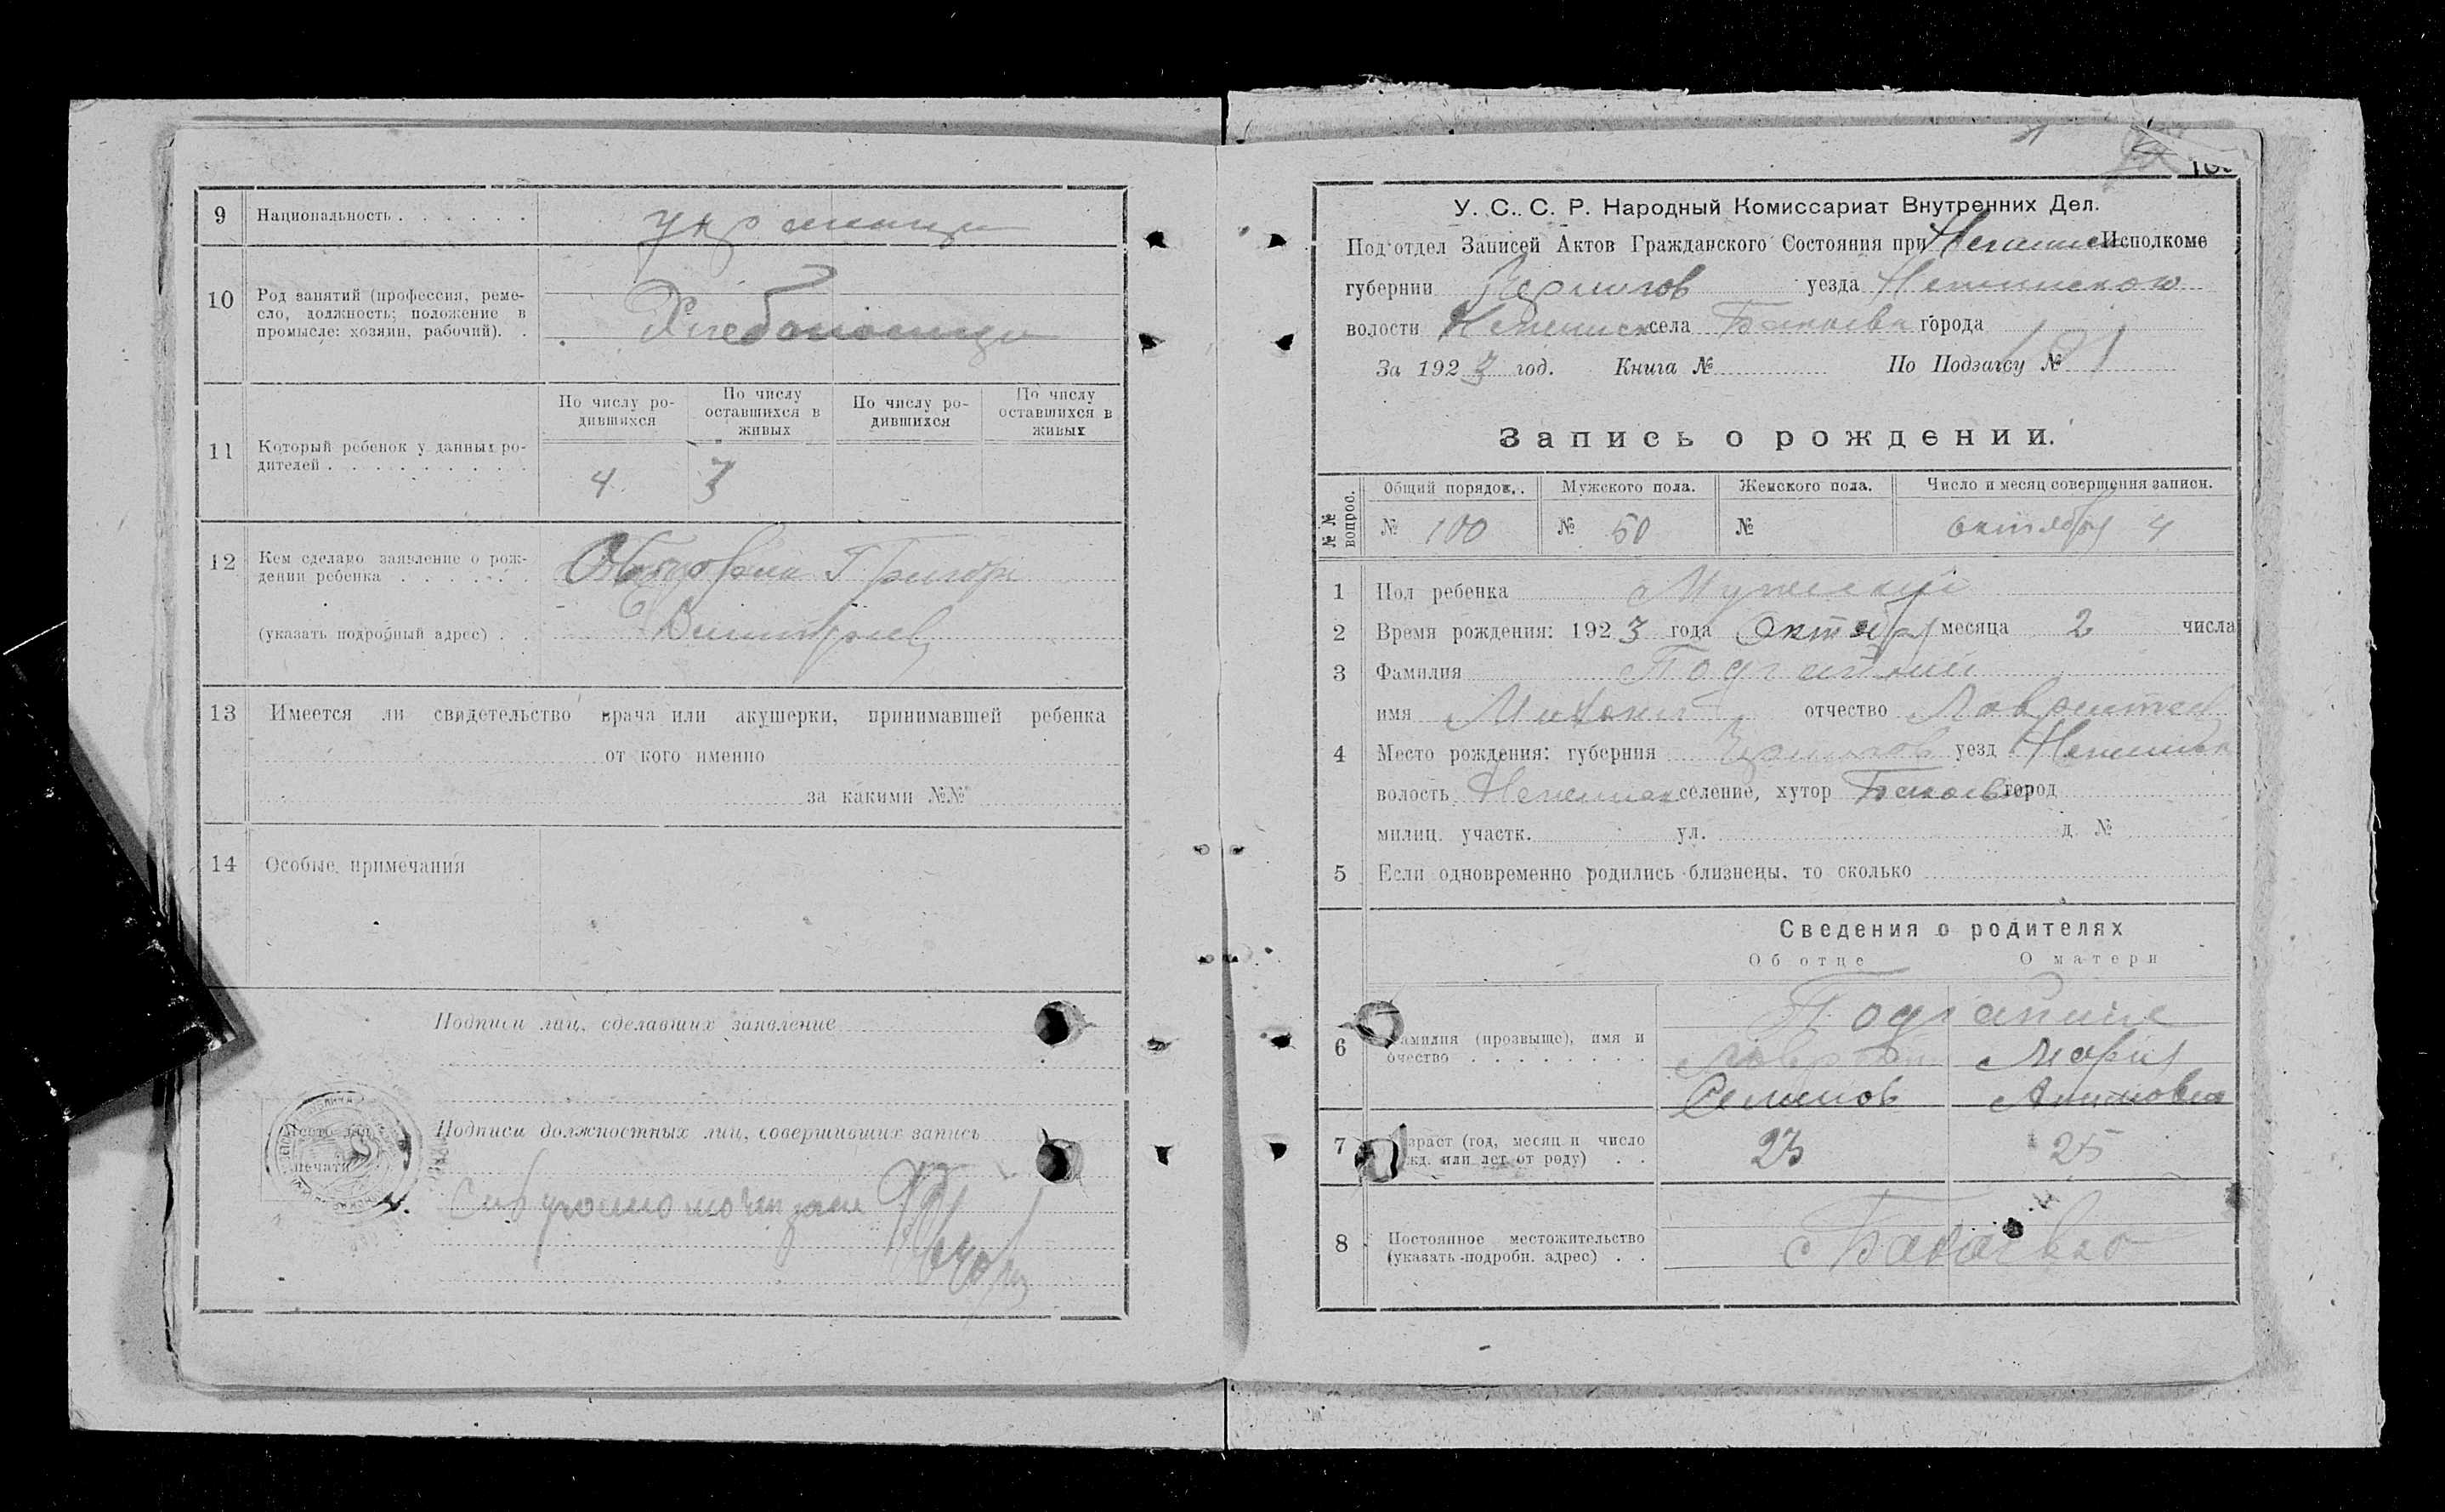 9 Национальность . . . . . . украинцы
10 Род занятий (профессия, реме-
сло, должность; положение в
промысле: хозяин, рабочий). .
Хлебопашцы
11 Который ребенок у данных ро-
дителей . . . . . . . . . .
По числу ро-
дившихся
По числу
оставшихся в
живых
По числу ро-
дившихся
По числу
оставшихся в
живых
4 3
12 Кем сделано заявление о рож-
дении ребенка . . . . . .
Григори
(указать подробный адрес) . .
Дмитриев
13 Имеется ли свидетельство врача или акушерки, принимавшей ребенка
от кого именно
за какими №№
14 Особые примечания
Подписи лиц, сделавших заявление
Место для
печати
Подписи должностных лиц, совершивших запись
У. С. С. Р. Народный Комиссариат Внутренних Дел.
Под‘отдел Записей Актов Гражданского Состояния при Исполкоме
губернии Чернигов уезда
волости села города
За 1923 год. Книга № По Подзагсу № 101
Запись о рождении.
№ № вопрос.
Общий порядок. Мужского пола. Женского пола. Число и месяц совершения записи.
№ 100 № 50 № октября 4
1 Пол ребенка Мужский
2 Время рождения: 1923 года Октября месяца 2 числа
3 Фамилия Подгайный
имя отчество Лаврентев
4 Место рождения: губерния Чернигов уезд
волость селение, хутор город
милиц. участк. ул. д. №
5 Если одновременно родились близнецы, то сколько
Сведения о родителях
Об отце О матери
6 Фамилия (прозвыще), имя и
очество . . . . . . . .
Подгайные
Лаврентий Мария
Семенов
7 Возраст (год, месяц и число
рожд. или лет от роду) . .
23 25
8 Постоянное местожительство
(указать подробн. адрес) . .
с Бакаевка